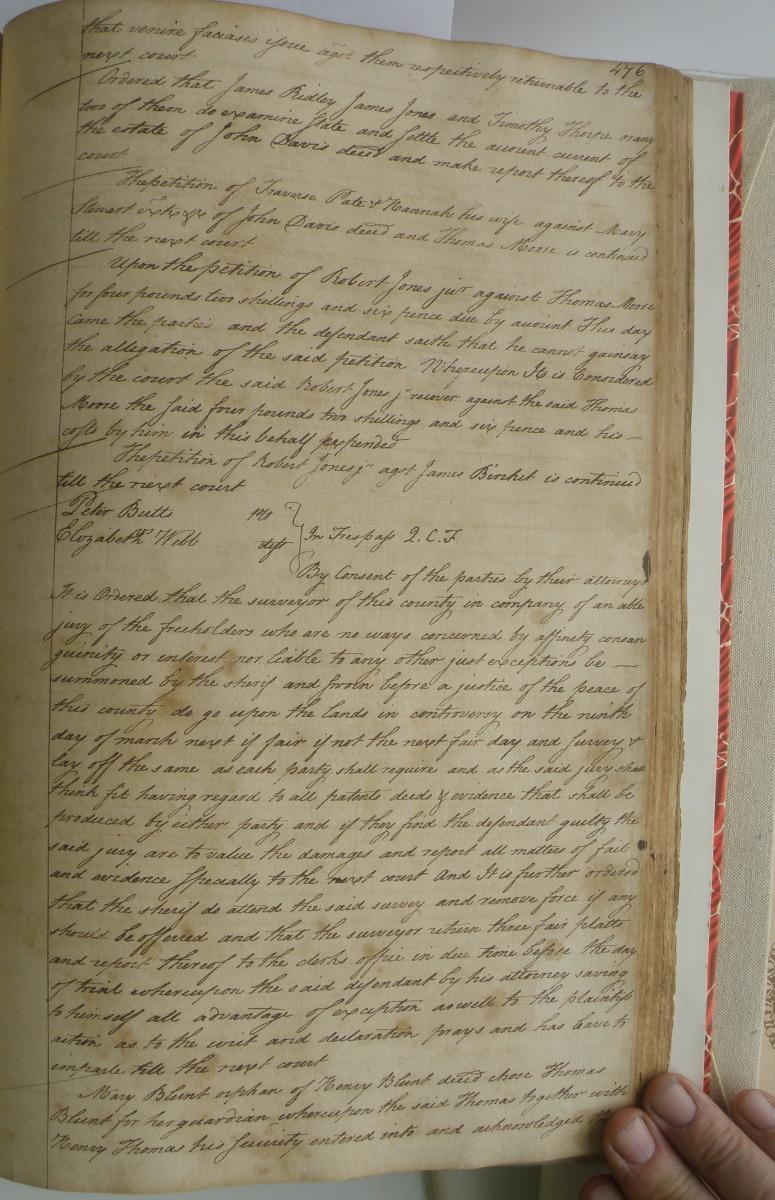 476
that venire faciases issue agst them respectively returnable to the
next court
Ordered that James Ridley James Jones and Timothy Thorpe or any
two of them do examine state and settle the account current of
the estate of John Davis decd and make report thereof to the
court
The petition of Traverse Pate & Hannah his wife against Mary
Stewart of John Davis decd and Thomas Moore is continued
till the next court
Upon the petition of Robert Jones junr against Thomas Moore
for four pounds two shillings and six pence due by account This day
came the parties and the defendant saith that he cannot gainsay
the allegation of the said petition Whereupon It is Considered
by the court the said Robert Jones jr recover against the said Thomas
Moore the said four pounds two shillings and six pence and his —
costs by him in this behalf expended
The petition of Robert Jones jr agst James Binket is continued
till the next court
Peter Butts plt
Elizabeth Webb deft } In Trespass Q. C. F.
By Consent of the parties by their attorneys
It is Ordered that the surveyor of this county in company of an able
jury of the freeholders who are no ways concerned by affinity consan
guinity or interest nor liable to any other just exceptions be —
summoned by the sherif and sworn before a justice of the peace of
this county do go upon the lands in controversy on the ninth
day of march next if fair if not the next fair day and survey &
lay off the same as each party shall require and as the said jury shall
think fit having regard to all patents deeds & evidence that shall be
produced by either party and if they find the defendant guilty the
said jury are to value the damages and report all matters of fact
and evidence specially to the next court And It is further ordered
that the sherif do attend the said survey and remove force if any
should be offered and that the surveyor return three fair platts
and report thereof to the clerks office in due time before the day
of trial whereupon the said defendant by his attorney saving
to himself all advantage of exception aswell to the plaintifs
action as to the writ and declaration prays and has leave to
imparle till the next court
Mary Blunt orphan of Henry Blunt decd chose Thomas
Blunt for her guardian whereupon the said Thomas together with
Henry Thomas his security entered into and acknowledged